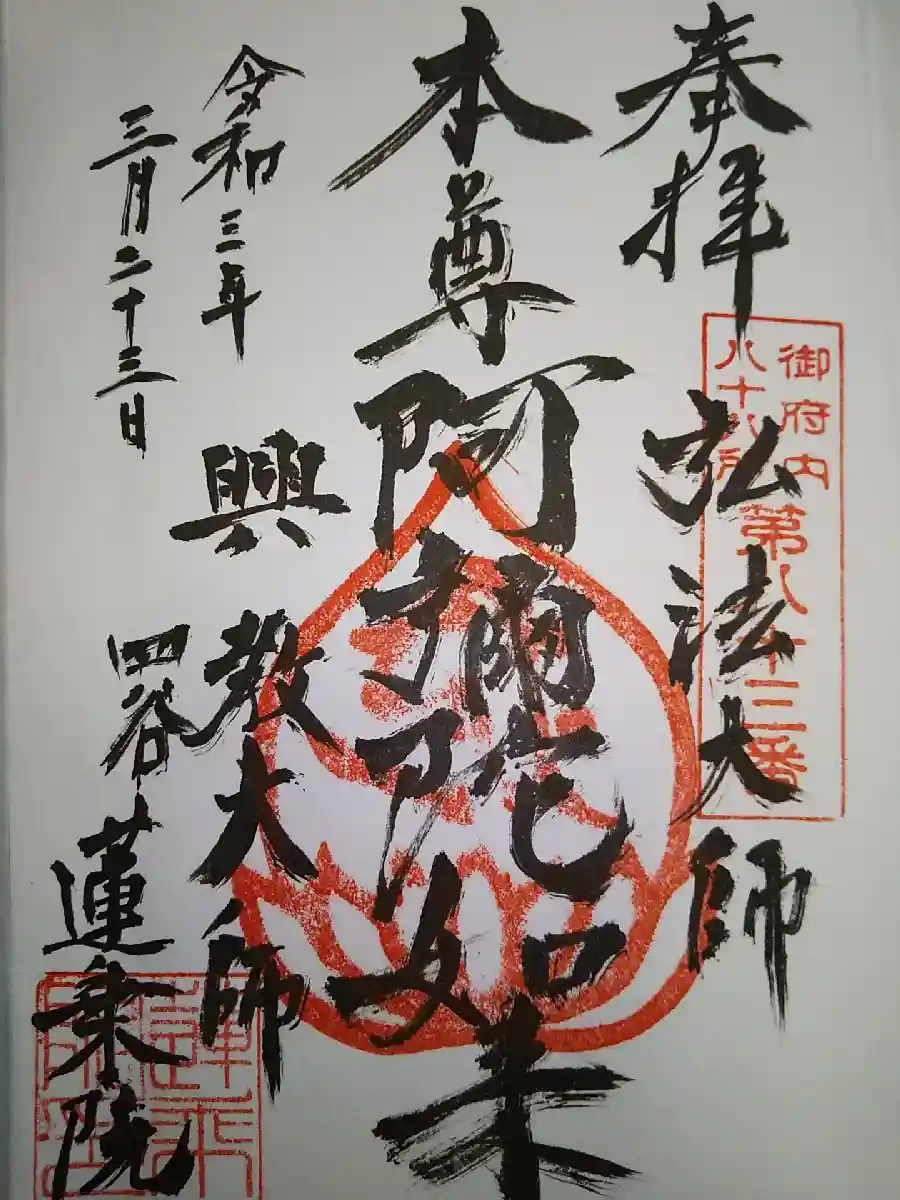 奉拝
御府内
八十八所
第八十三番
弘法大師
本尊阿弥陀如来
興教大師
令和三年
三月二十三日
四谷
蓮乗院